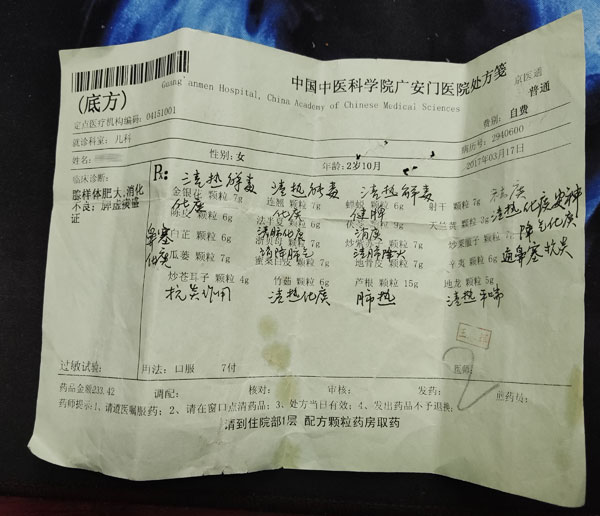 中国中医科学院广安门医院处方笺
Guang'anmen Hospital, China Academy of Chinese Medical Sciences
京医通
普通
(底方)
定点医疗机构编码: 04151001
费别: 自费
就诊科室: 儿科
病历号: 2940600
姓名:
性别: 女
年龄: 2岁10月
2017年03月17日
临床诊断:
腺样体肥大,消化
不良: 肺虚痰蕴
证
R:
清热解毒 清热解毒 清热解毒
金银花 颗粒 7g 连翘 颗粒 7g 颗粒 6g 射干 颗粒 7g
化痰 化痰 健脾 清热化痰安神
陈皮 颗粒 6g 法半夏 颗粒 6g 颗粒 9g 天竺黄
鼻塞 清肺化痰 消痰 降气化痰
白芷 颗粒 6g 浙贝母 颗粒 炒紫苏子 颗粒 炒莱菔子 颗粒
化痰 清降肺气 清肺降火 通鼻塞抗炎
瓜蒌 颗粒 7g 蜜桑白皮 颗粒 7g 地骨皮 颗粒 7g 辛夷 颗粒 6g
炒苍耳子 颗粒 4g 竹茹 颗粒 6g 芦根 颗粒 15g 地龙 颗粒 5g
抗炎作用 清热化痰 肺热 清热平喘
过敏试验:
用法: 口服 7付
医师:
2
药品金额233.42
调配: 核对: 审核: 发药: 煎药员:
药师提示:1、请遵医嘱服药; 2、请在窗口点清药品; 3、处方当日有效; 4、发出药品不予退换;
请到住院部1层 配方颗粒药房取药